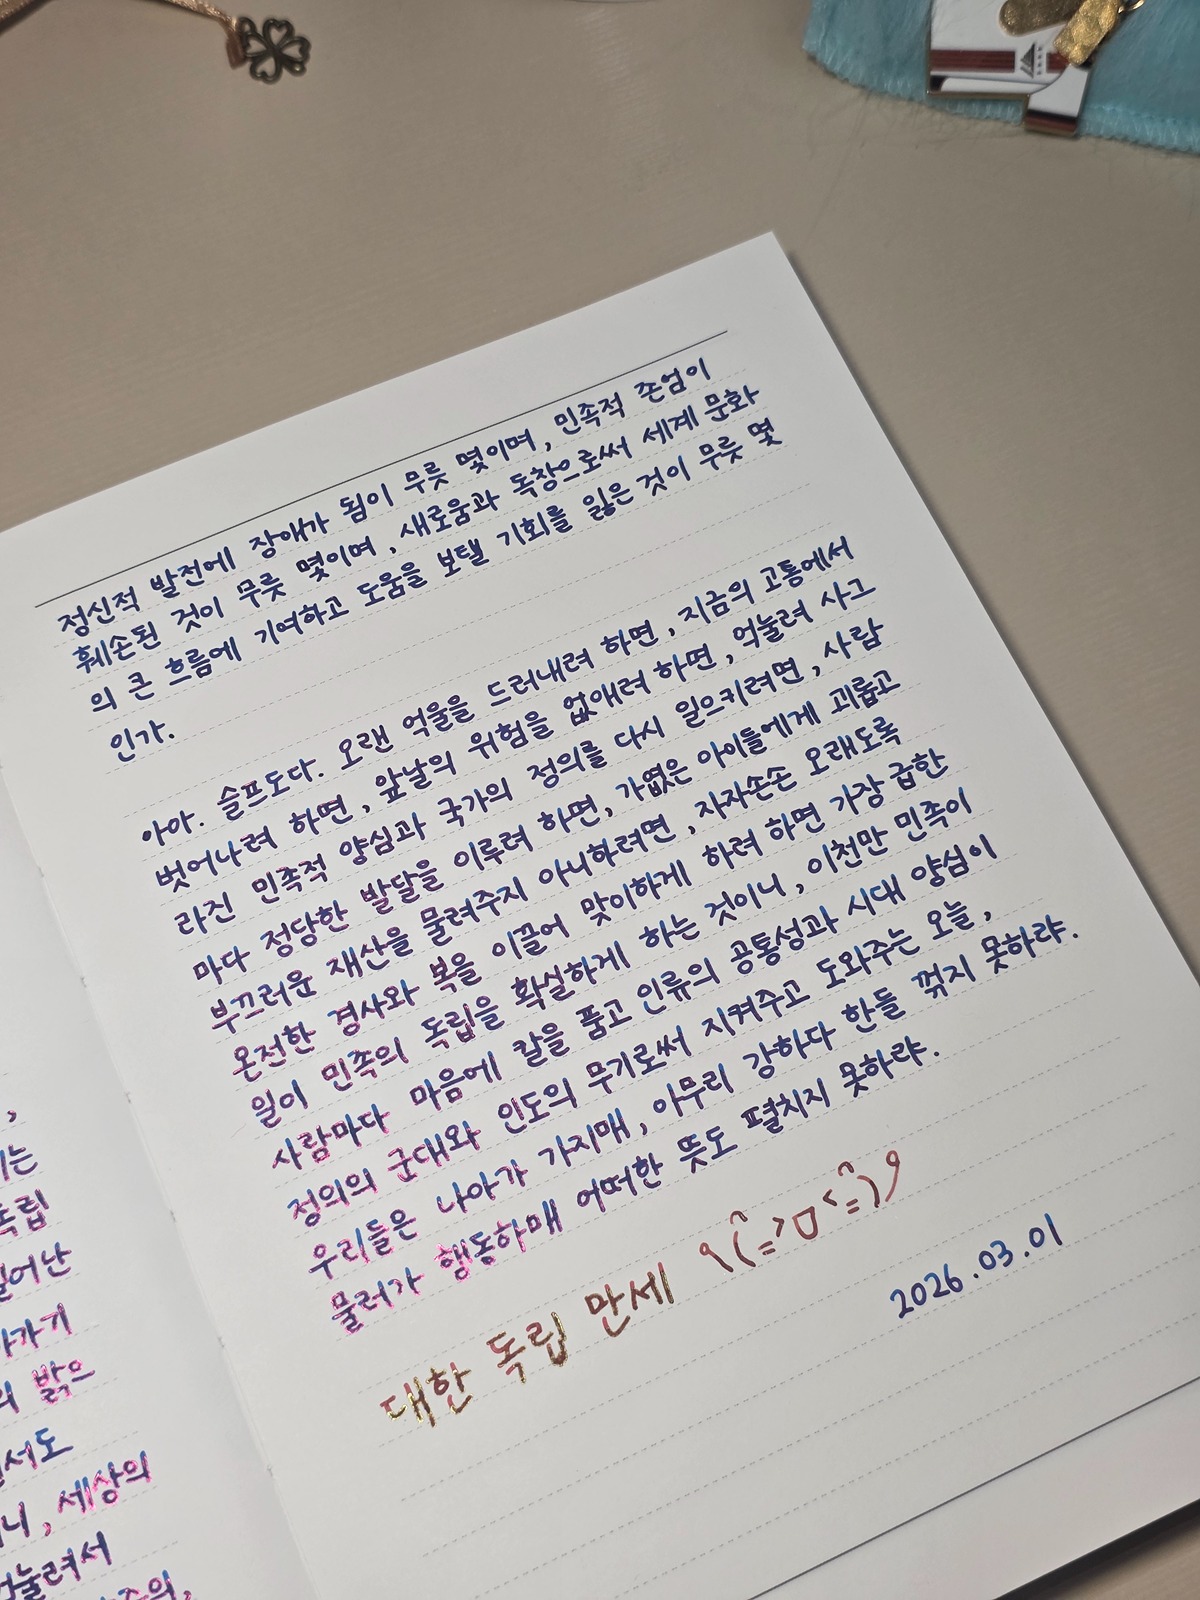 정신적 발전에 장애가 됨이 무릇 몇이며, 민족적 존엄이
훼손된 것이 무릇 몇이며, 새로움과 독창으로써 세계 문화
의 큰 흐름에 기여하고 도움을 보탤 기회를 잃은 것이 무릇 몇
인가.
아아. 슬프도다. 오랜 억울을 드러내려 하면, 지금의 고통에서
벗어나려 하면, 앞날의 위험을 없애려 하면, 억눌려 사그
라진 민족적 양심과 국가의 정의를 다시 일으키려면, 사람
마다 정당한 발달을 이루려 하면, 가엾은 아이들에게 괴롭고
부끄러운 재산을 물려주지 아니하려면, 자자손손 오래도록
온전한 경사와 복을 이끌어 맞이하게 하려 하면 가장 급한
일이 민족의 독립을 확실하게 하는 것이니, 이천만 민족이
사람마다 마음에 칼을 품고 인류의 공통성과 시대 양심이
정의의 군대와 인도의 무기로써 지켜주고 도와주는 오늘,
우리들은 나아가 가지매, 아무리 강하다 한들 꺾지 못하랴.
물러가 행동하매 어떠한 뜻도 펼치지 못하랴.
대한 독립 만세
2026.03.01
는
독립
일어난
가기
의 밝으
서도
니, 세상의
억눌려서
주의,